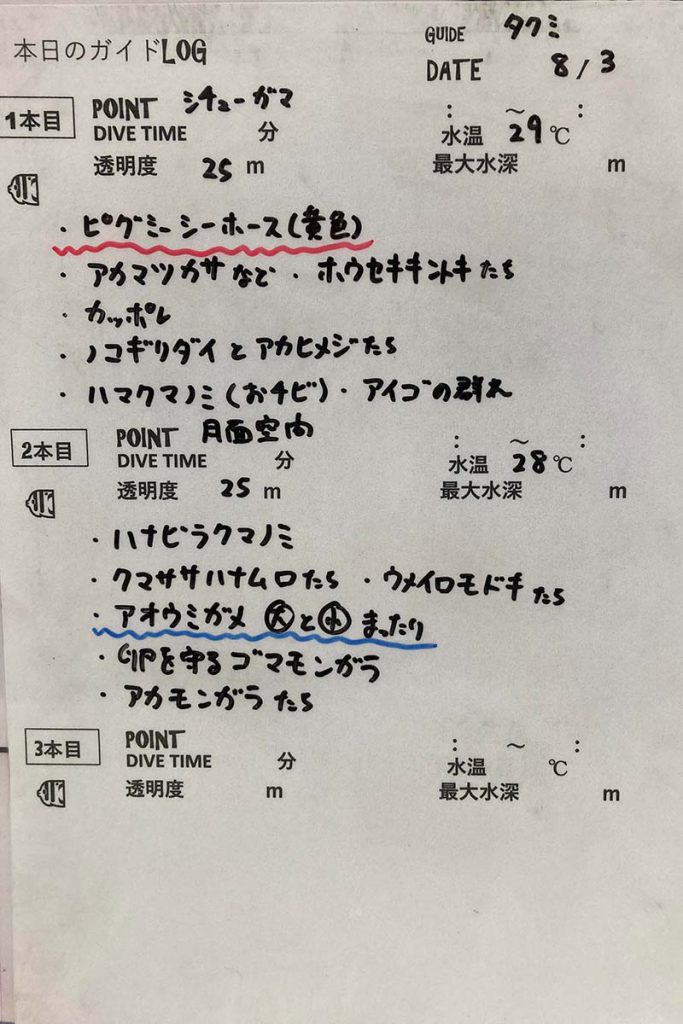 本日のガイドLOG
GUIDE タクミ
DATE 8/3
1本目 POINT シチューガマ : ～ :
DIVE TIME 分 水温 29℃
透明度 25 m 最大水深 m
・ピグミーシーホース(黄色)
・アカマツカサなど ・ホウセキキントキたち
・カッポレ
・ノコギリダイとアカヒメジたち
・ハマクマノミ(おチビ)・アイゴの群れ
2本目 POINT 月面空间 : ～ :
DIVE TIME 分 水温 28℃
透明度 25 m 最大水深 m
・ハナビラクマノミ
・クマササハナムロたち ・ウメイロモドキたち
・アオウミガメ 大と小 まったり
・を守るゴマモンガラ
・アカモンガラたち
3本目 POINT : ～ :
DIVE TIME 分 水温 ℃
透明度 m 最大水深 m